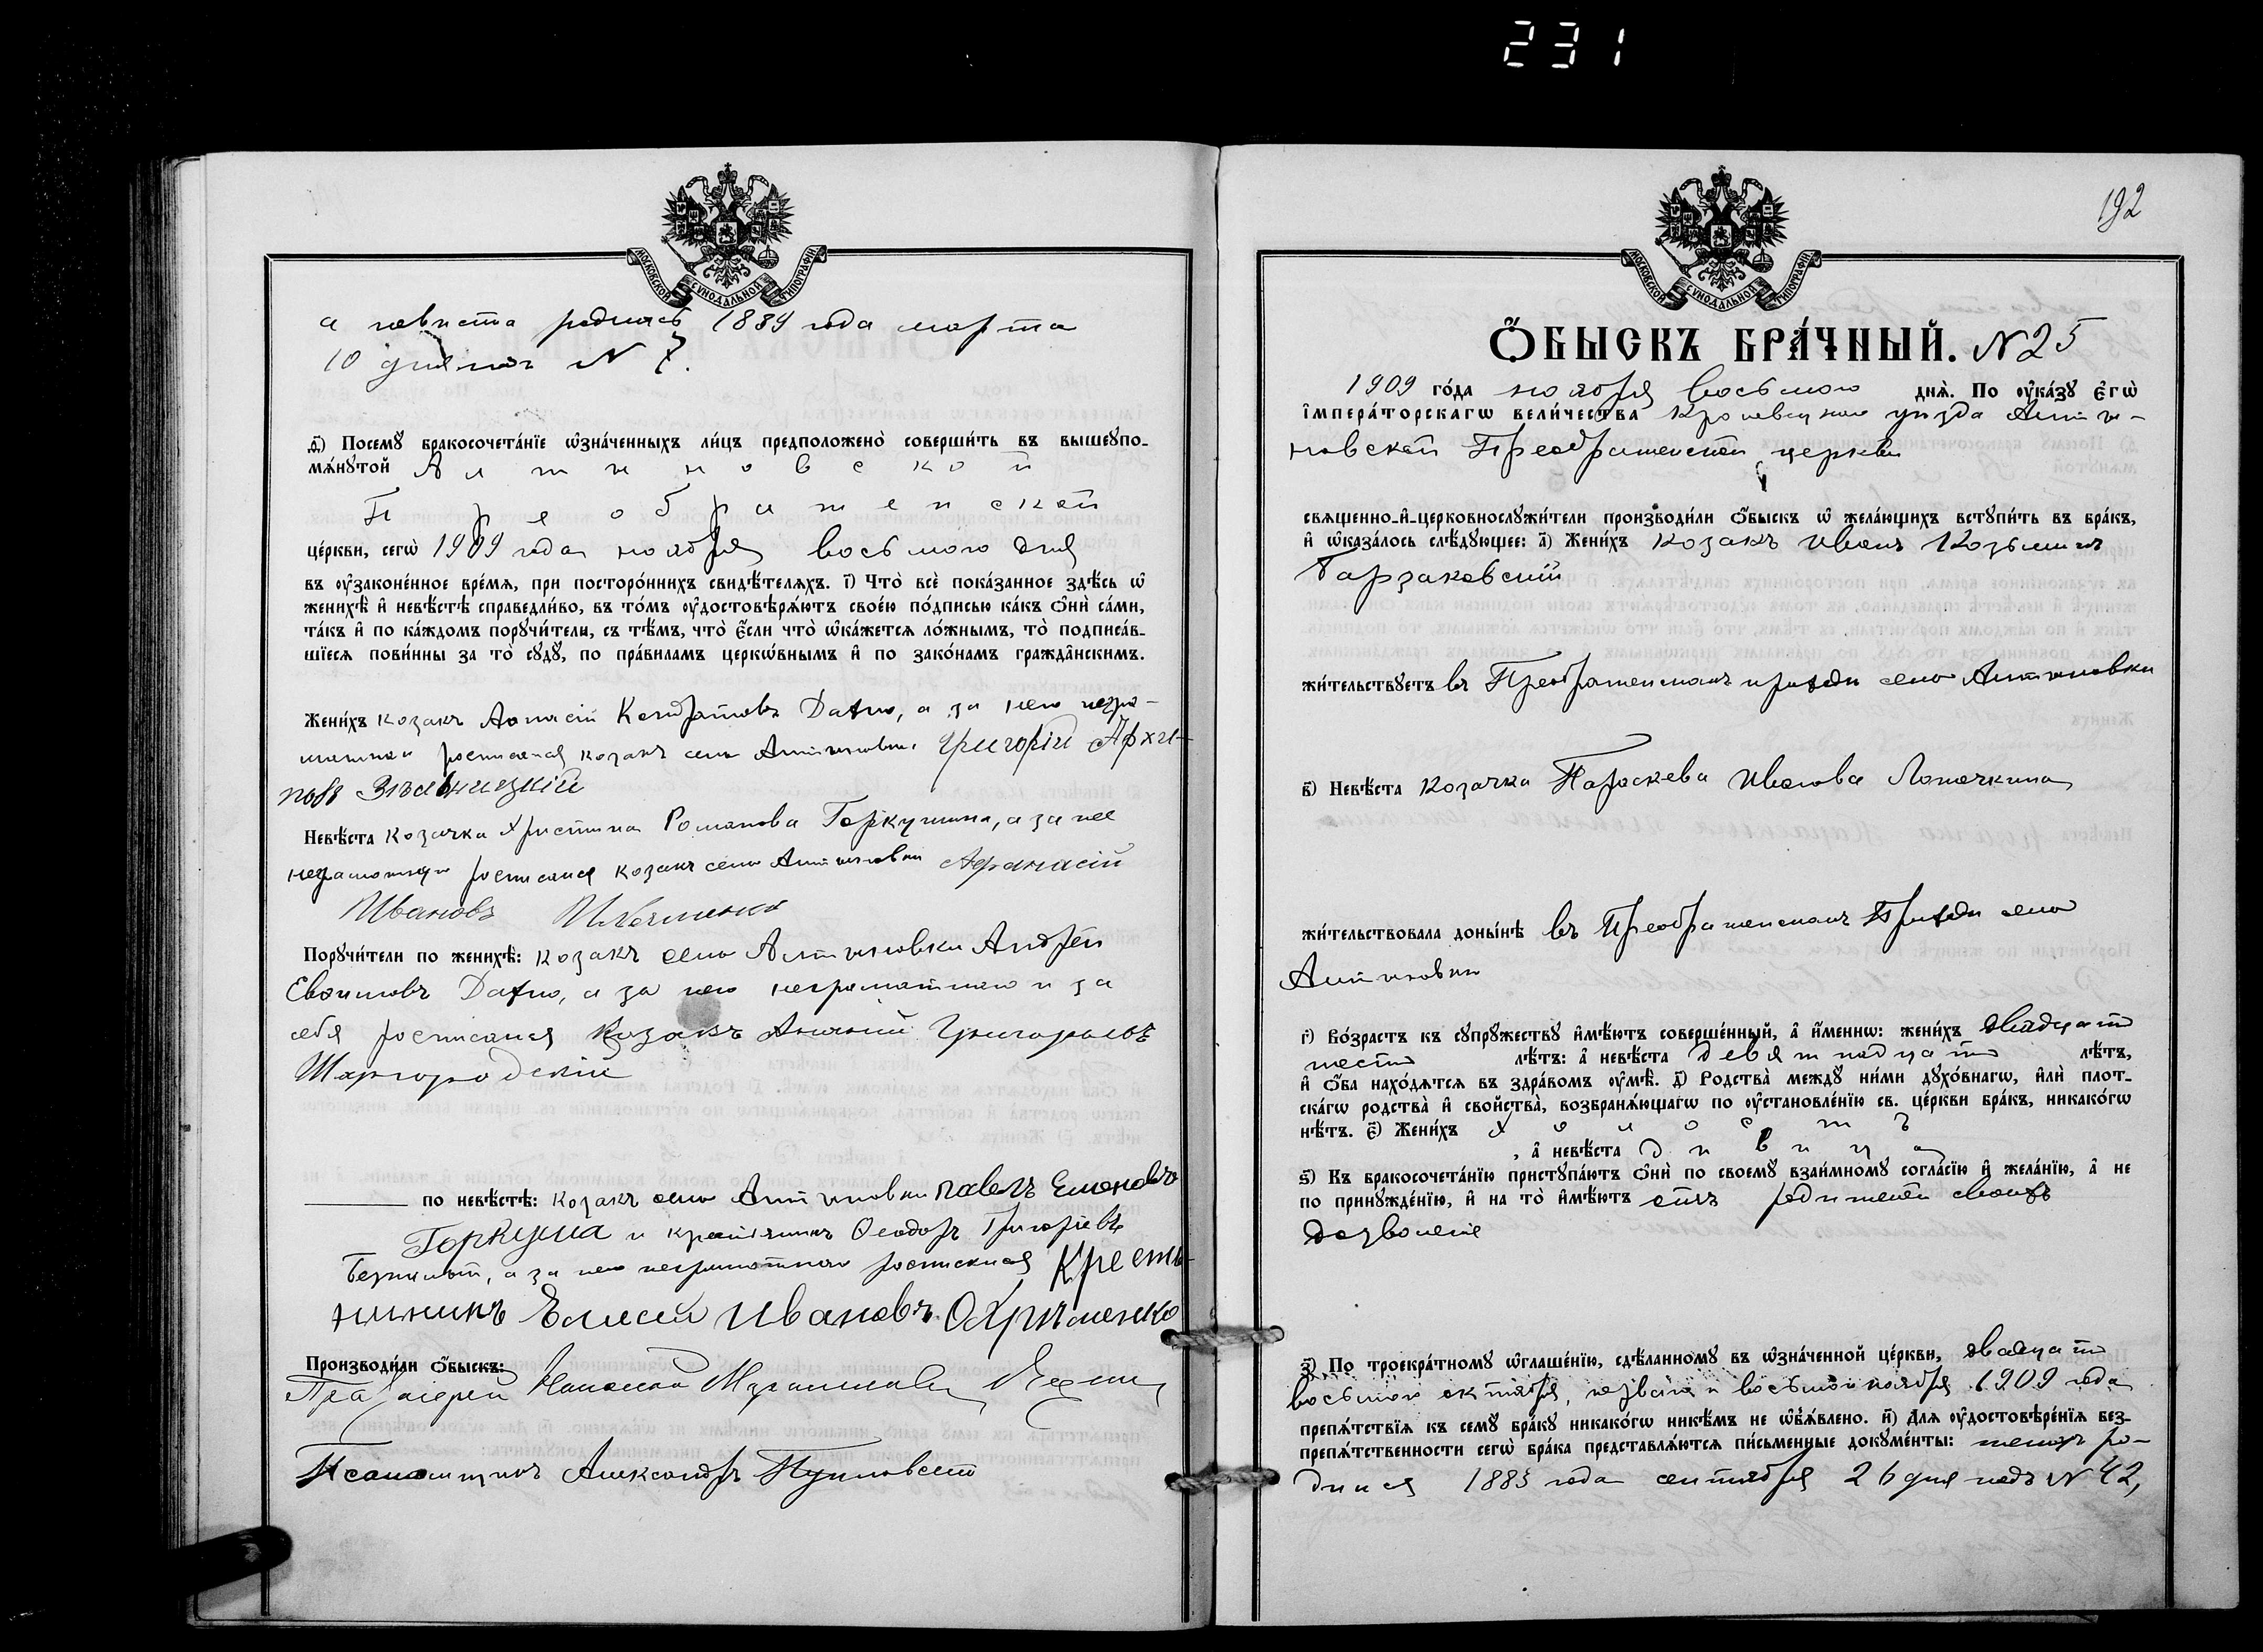 231
МОСКОВСКОЙ СѴНОДАЛЬНОЙ ТИПОГРАФІИ
а невиста родилась 1889 года марта
10 дня N 7.
ѳ҃) Посемꙋ бракосочета́нїе ѡ҆зна́ченныхъ ли́цъ предположено̀ соверши́ть въ вышеꙋпо-
мѧ́нꙋтой Алтиновской
Преображенской
це́ркви, сегѡ̀ 1909 года ноября восьмого дня
въ ᲂу҆законе́нное вре́мѧ, при посторо́ннихъ свидѣ́телѧхъ. і҃) Что̀ всѐ пока́занное здѣ́сь ѡ҆
женихѣ̀ и҆ невѣ́стѣ справедли́во, въ то́мъ ᲂу҆достовѣрѧ́ютъ свое́ю по́дписью ка́къ ѻ҆нѝ са́ми,
та́къ и҆ по ка́ждомъ порꙋчи́тели, съ тѣ́мъ, что̀ є҆́сли что̀ ѡ҆ка́жетсѧ ло́жнымъ, то̀ подписа́в-
шїесѧ пови́нны за то̀ сꙋдꙋ̀, по пра́виламъ церкѡ́внымъ и҆ по зако́намъ гражда̂нскимъ.
Жени́хъ козакъ Кондратовъ Датно, а за него негра-
росписался козакъ села Алтиновки Григорій Архи-
повъ
Невѣ́ста козачка Христина Романова Горкушина, а за нее
неграмотную росписался козакъ села Алтиновки Афанасій
Ивановъ
Порꙋчи́тели по женихѣ̀: козакъ села Алтиновки Андрей
Датно, а за него неграмотнаго и за
себя росписался Козакъ Ананій Григорьевъ
Шаргородскій
по невѣ́стѣ: козакъ села Алтиновки Павелъ
Горкуша и крестянинъ Ѳеодоръ Григорьевъ
а за него неграмотнаго росписался Кресть-
янинъ Елисей Ивановъ Охрѣменко
Производи́ли ѻ҆́быскъ:
Псаломщикъ Александръ
192
МОСКОВСКОЙ СѴНОДАЛЬНОЙ ТИПОГРАФІИ
Ѻ҆́БЫСКЪ БРА́ЧНЫЙ. N 25
1909 го́да ноября восьмого днѧ̀. По ᲂу҆ка́зꙋ є҆гѡ̀
і҆мпера́торскагѡ вели́чества Кролевецкаго уизда Алти-
новской Преображенской церкви
свѧщенно-и҆-церковнослꙋжи́тели произво́дили ѻ҆́быскъ ѡ҆ жела́ющихъ встꙋпи́ть въ бра́къ,
и҆ ѡ҆каза́лось слѣ́дꙋющее: а҃) Жени́хъ козакъ Иванъ Козьминъ
Гарзаковскій
жи́тельствꙋетъ въ Преображенскомъ приходи села Алтиновки
в҃) Невѣ́ста козачка Параскева Иванова Лопачкина
жи́тельствовала доны́нѣ въ Преображенскомъ Приходи села
Алтиновки
г҃) Во́зрастъ къ сꙋпрꙋ́жествꙋ и҆мѣ́ютъ соверше́нный, а҆ и҆́меннѡ: жени́хъ двадцать
шесть лѣ́тъ: а҆ невѣ́ста девятнадцать лѣ́тъ,
и҆ ѻ҆́ба нахо́дѧтсѧ въ здра́вомъ ᲂу҆мѣ̀. д҃) Родства̀ междꙋ̀ ни́ми дꙋхо́внагѡ, и҆лѝ плот-
ска́гѡ родства̀ и҆ сво́йства̀, возбранѧ́ющагѡ по ᲂу҆становле́нїю св. це́ркви бра́къ, никако́гѡ
нѣ́тъ. є҃) Жени́хъ холостъ
, а҆ невѣ́ста дивица
ѕ҃) Къ бракосочета́нїю пристꙋпа́ютъ ѻ҆нѝ по своемꙋ̀ взаи́мномꙋ согла́сїю и҆ жела́нїю, а҆ не
по принꙋжде́нїю, и҆ на то̀ и҆мѣ́ютъ отъ родителей своихъ
дозволеніе
з҃) По троекра́тномꙋ ѡ҆глаше́нїю, сдѣ́ланномꙋ въ ѡ҆зна́ченной це́ркви, двадцать
восьмого октября, перваго и восьмого ноября 1909 года
препѧ́тствїѧ къ семꙋ̀ бра́кꙋ никако́гѡ никѣ́мъ не ѡ҆б̾ѧ́влено. и҃) Длѧ ᲂу҆достовѣре́нїѧ без-
препѧ́тственности сегѡ̀ бра́ка представлѧ́ютсѧ пи́сьменные докꙋме́нты: женихъ ро-
дился 1883 года сентября 26 дня подъ N 42,